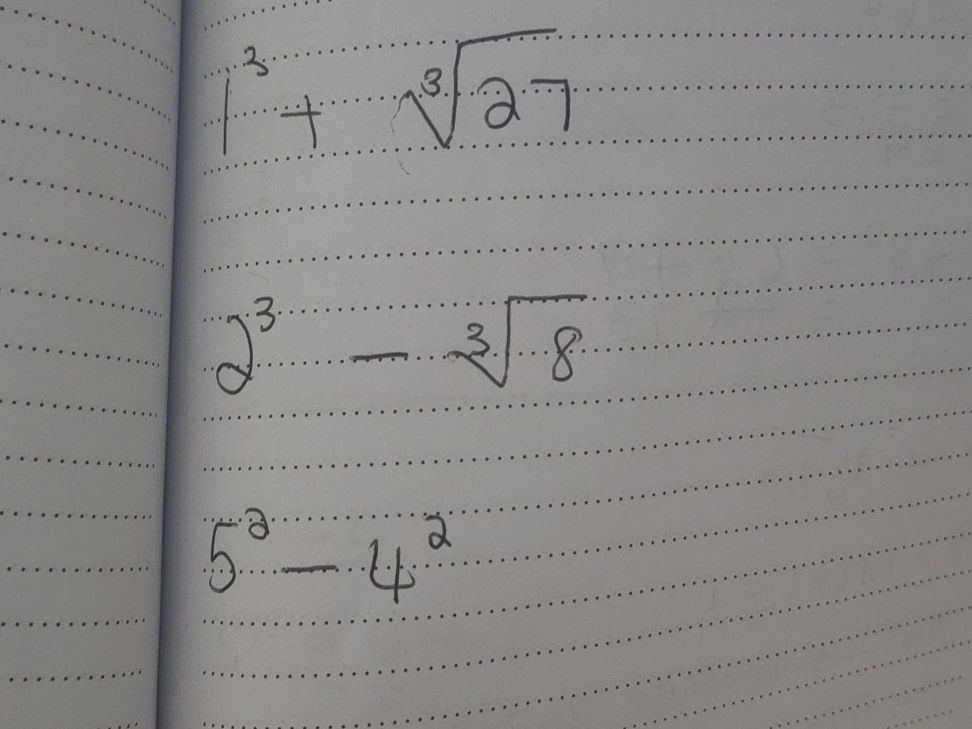 1³ + ∛27
2³ - ∛8
5² - 4²